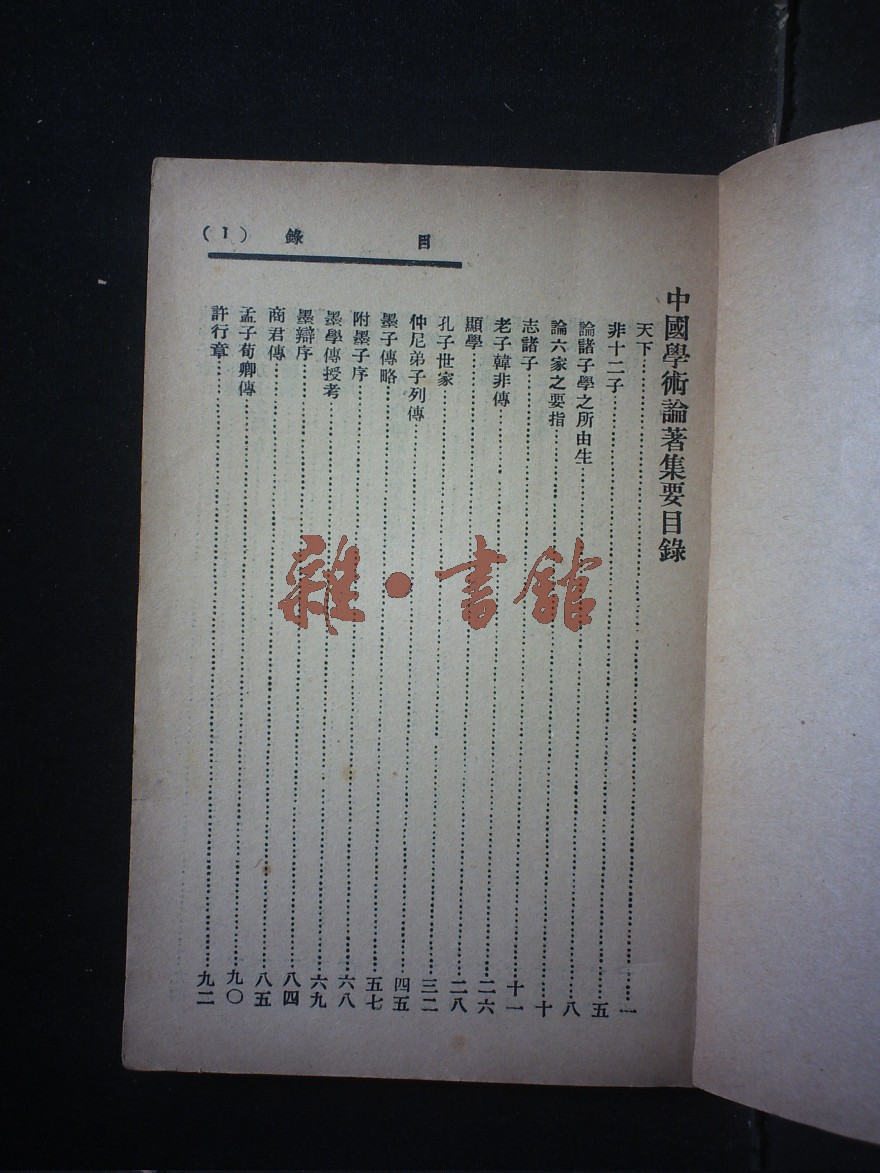 中國學術論著集要目錄
目錄(1)
天下……一
非十二子……五
論諸子學之所由生……八
論六家之要指……十
志諸子……十一
老子韓非傳……二六
顯學……二八
孔子世家……三二
仲尼弟子列傳……四五
墨子傳略……五七
附墨子序……六八
墨學傳授考……六九
墨辯序……八四
商君傳……八五
孟子荀卿傳……九〇
許行章……九二
雜·書館